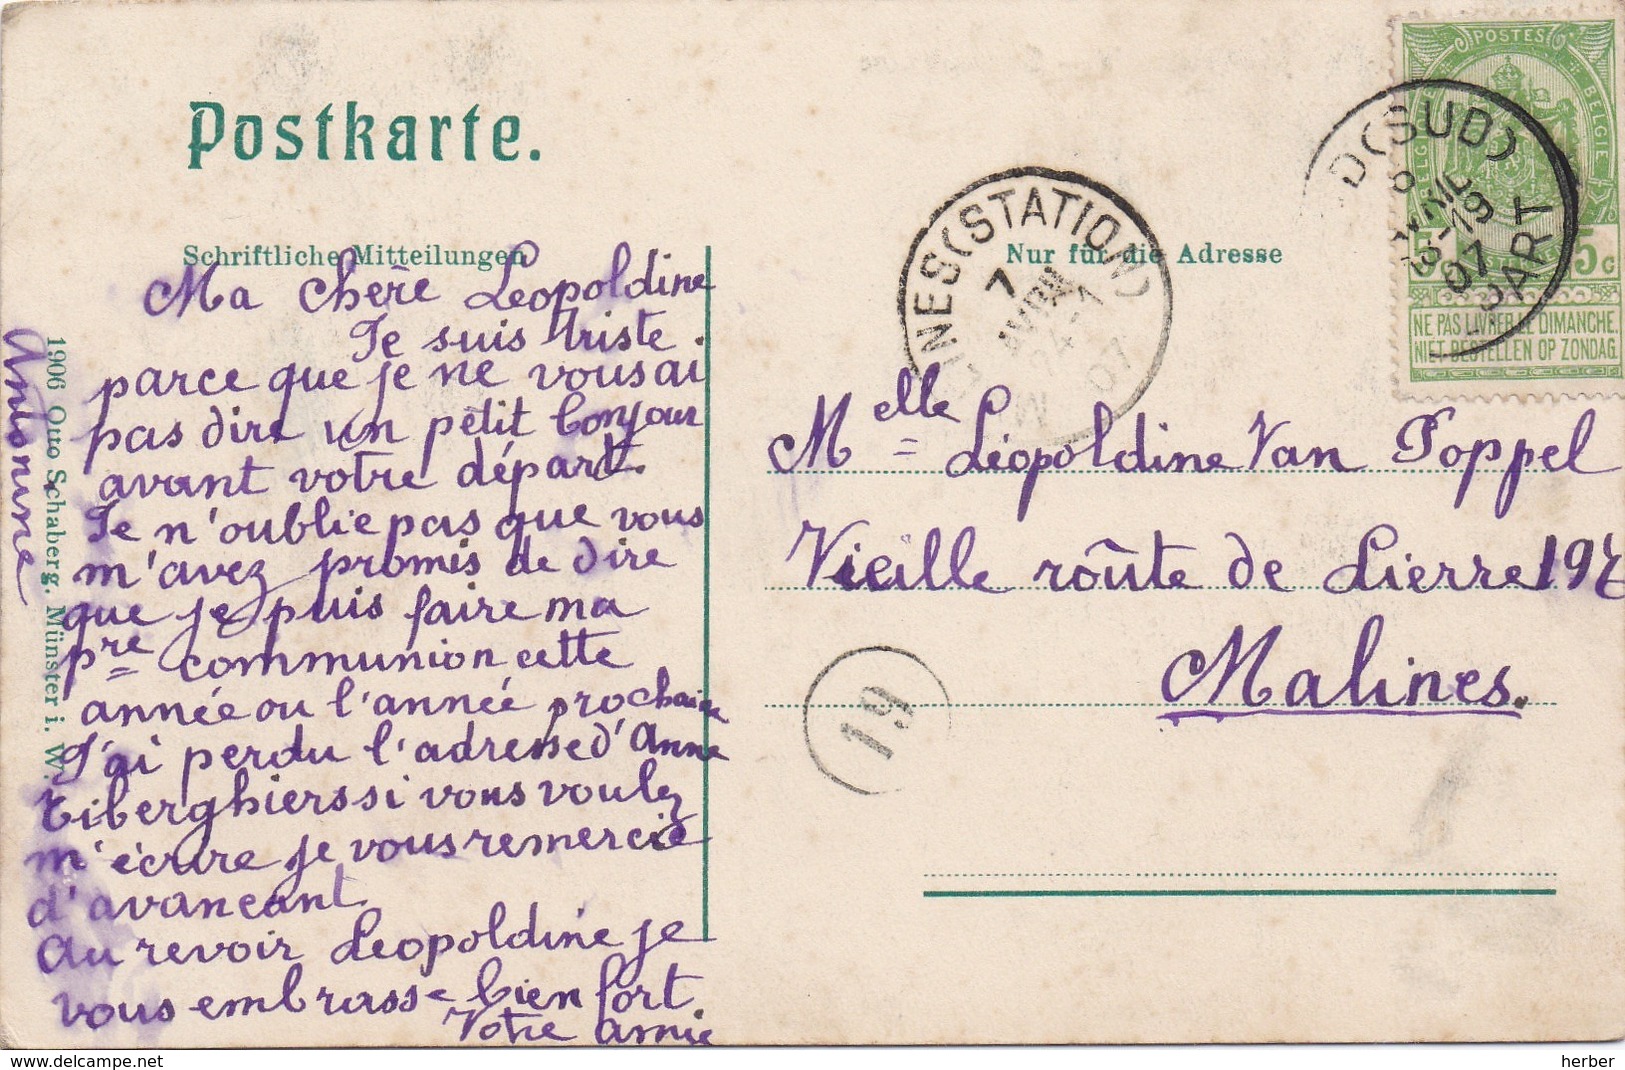 Postkarte.
Schriftliche Mitteilungen
Nur für die Adresse
Ma chère Léopoldine
Je suis triste.
parce que je ne vous ai
pas dire un petit bonjour
avant votre départ.
Je n'oublie pas que vous
m'avez promis de dire
que je puis faire ma
pre communion cette
année ou l'année prochaine
J'ai perdu l'adresse d'Anne
Tiberghiers si vous voulez
m'écrire je vous remercie
d'avançant.
Au revoir Léopoldine je
vous embrasse bien fort
Votre amie
Antonine
1906 Otto Schaberg. Münster i. W.
POSTES
BELGIE
5 5c
NE PAS LIVRER LE DIMANCHE.
NIET BESTELLEN OP ZONDAG
D (SUD)
8
AVRIL
07
PART
INES (STATION)
7
AVRIL
07
M
Melle Léopoldine Van Poppel
Vieille route de Lierre
Malines.
19
© www.delcampe.net
herber